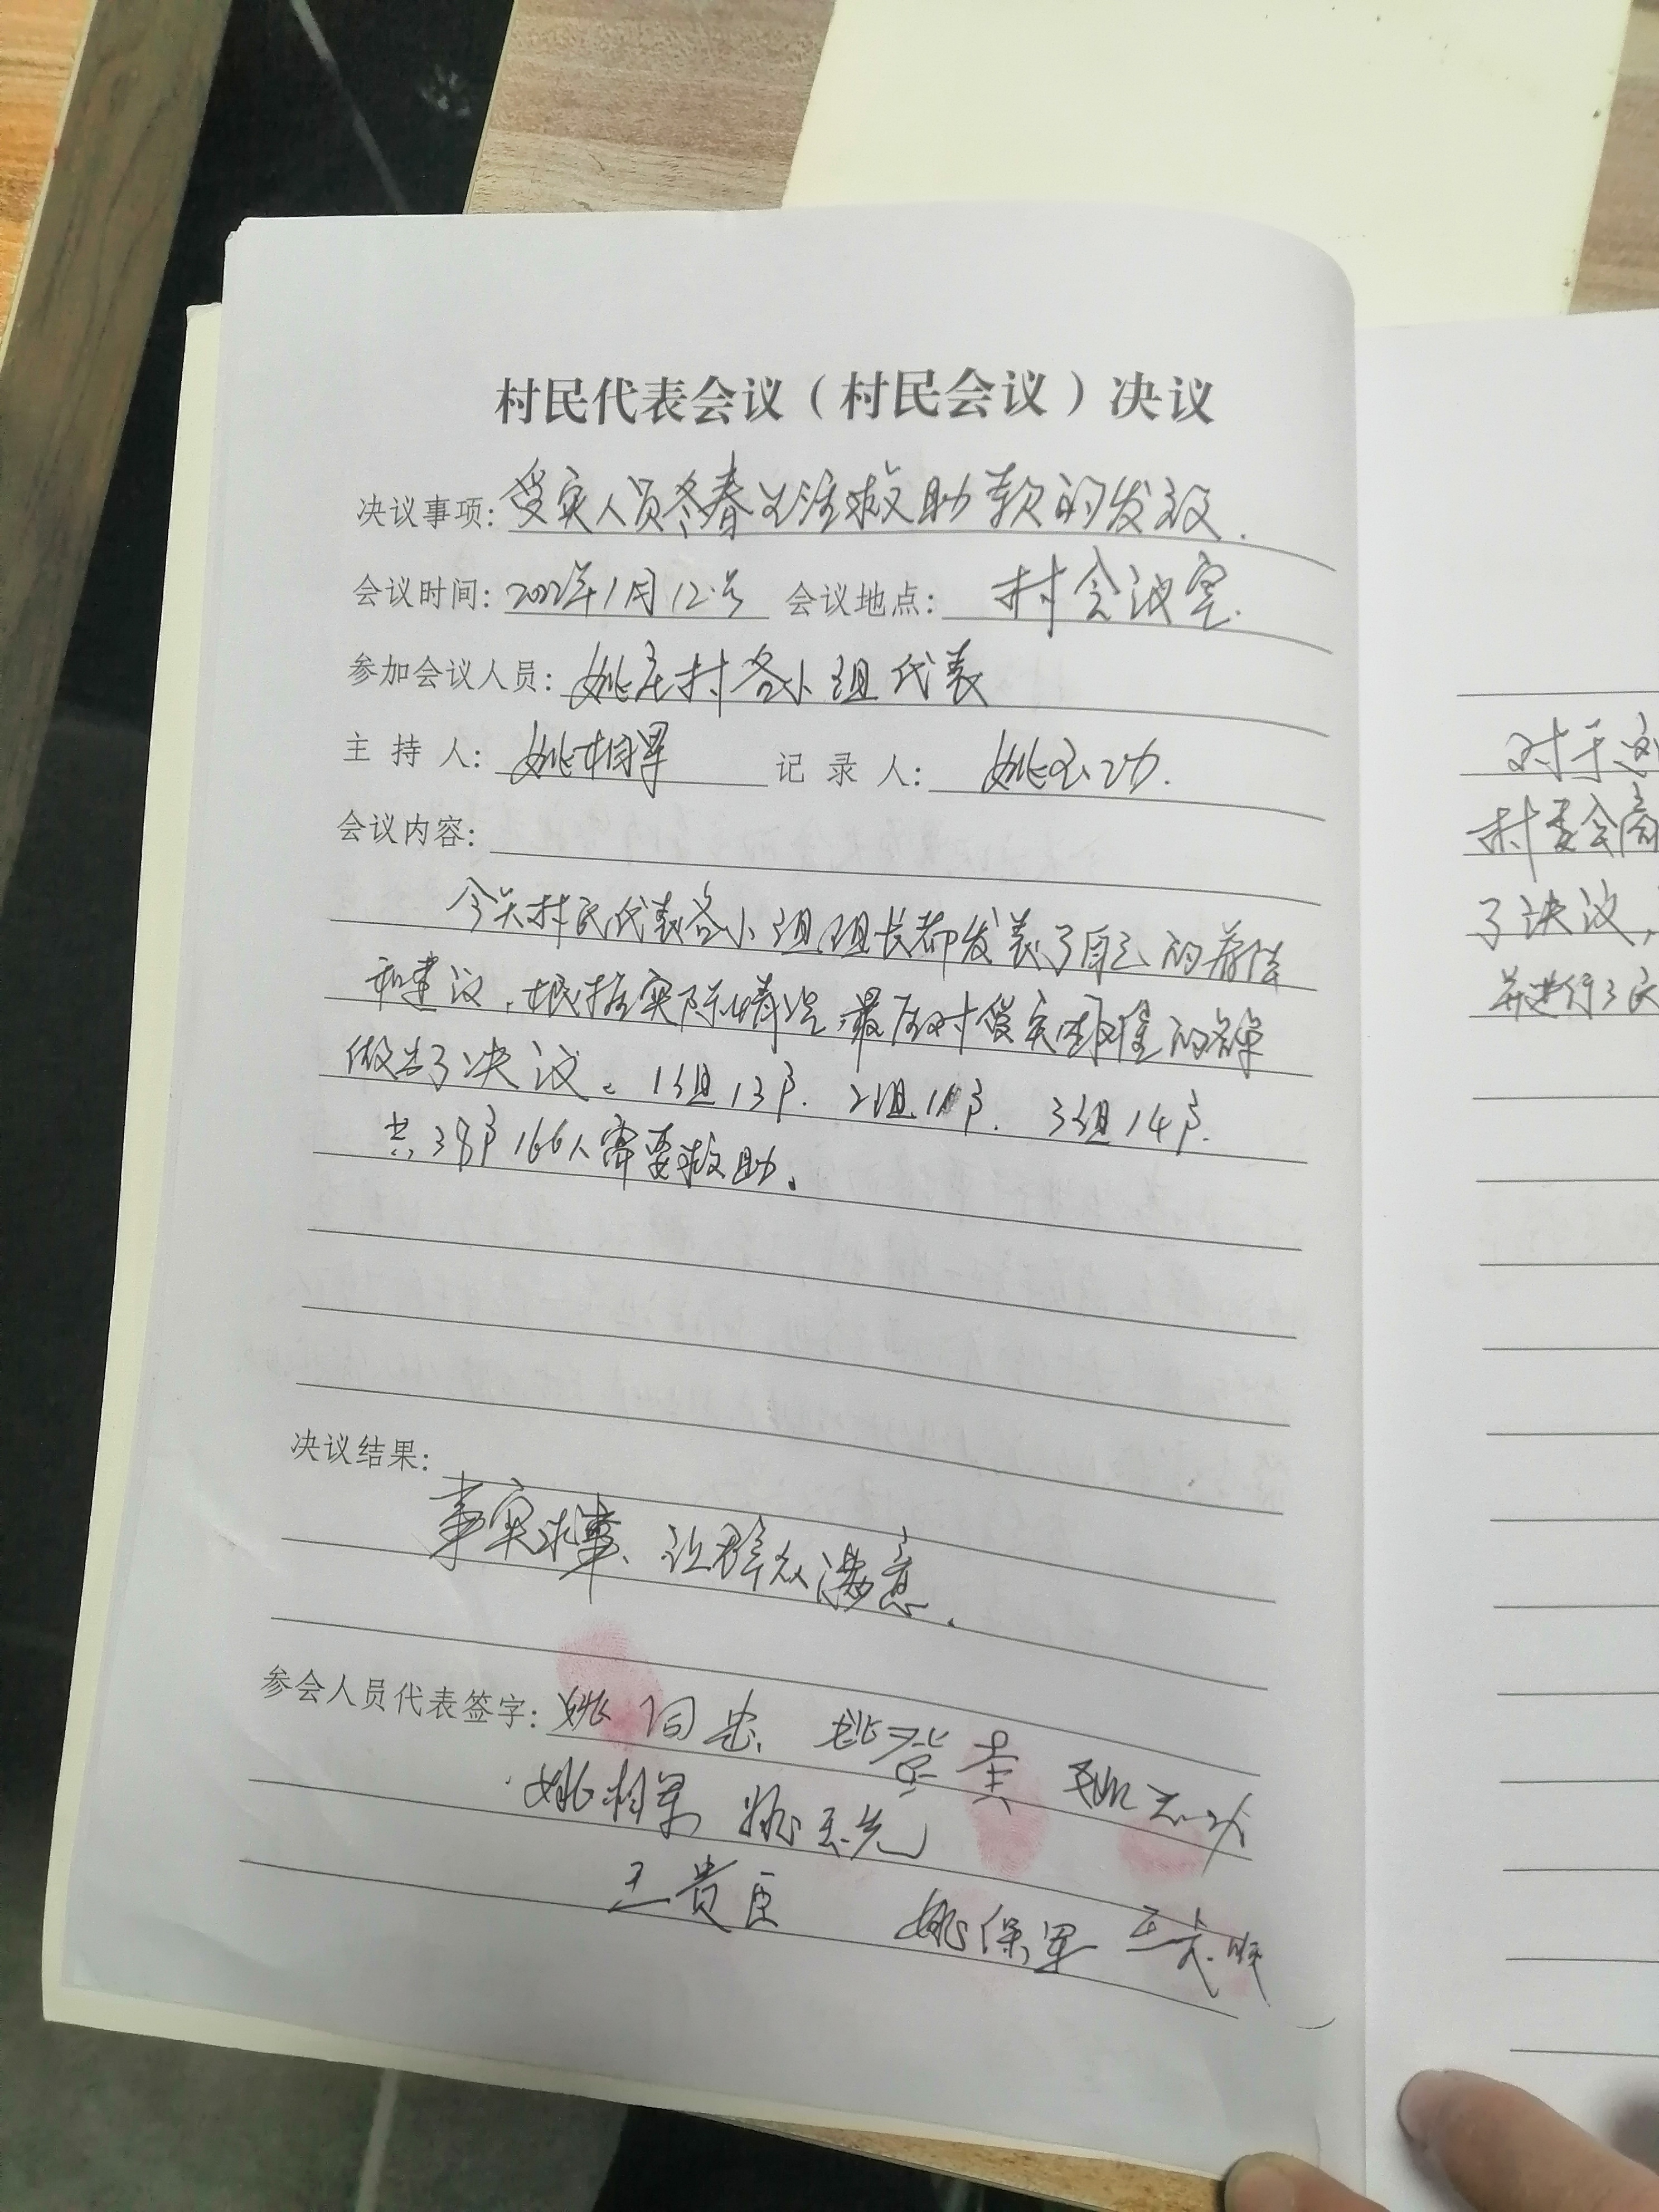 村民代表会议（村民会议）决议
决议事项：受灾人员冬春生活救助款的发放.
会议时间：2022年1月12号 会议地点：村会议室.
参加会议人员：姚庄村各小组代表
主持人：姚相军 记录人：姚志功.
会议内容：
今天村民代表各小组组长都发表了自己的看法
和建议，根据实际情况，最后对受灾困难的名单
做出了决议。1组13户. 2组11户. 3组14户.
共38户166人需要救助。
决议结果：
事实求事、让群众满意.
参会人员代表签字：姚 同忠 姚登 姚志功
姚相军 姚志先
王贵臣 姚保军 王 顺
对于这
村委会商
了决议，
并进行了